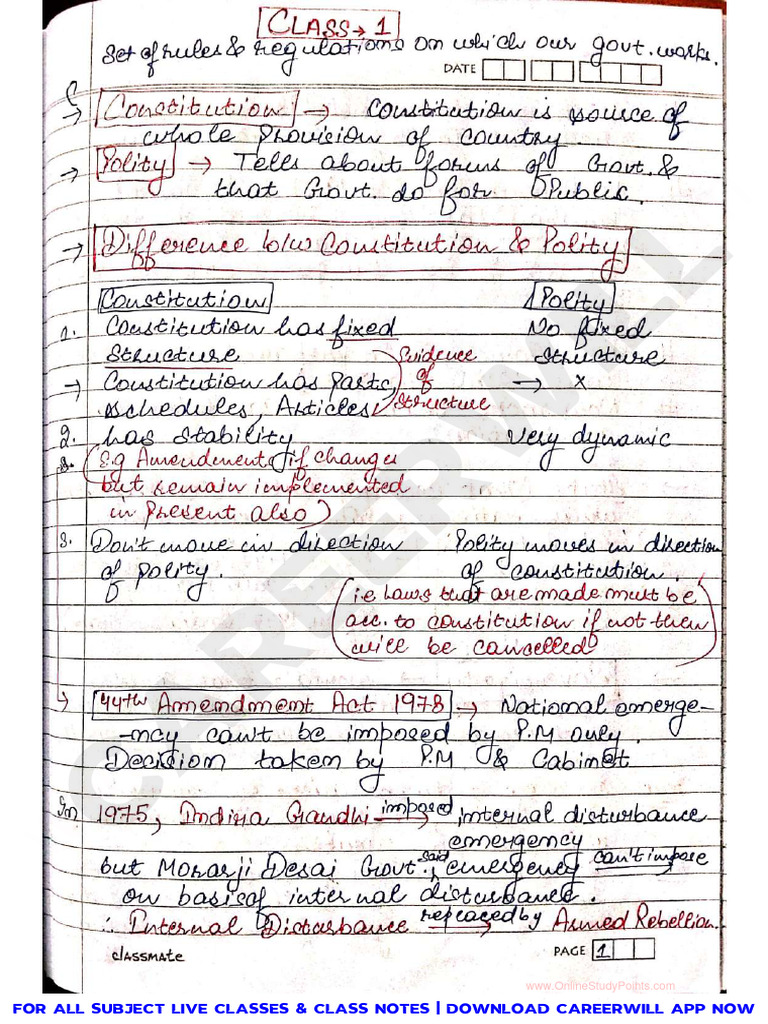 CLASS → 1
set of rules & regulations on which our govt. works.
DATE
→ Constitution → Constitution is source of
whole provision of country
→ Polity → Tells about forms of Govt. &
that Govt. do for Public.
→ Difference b/w Constitution & Polity
Constitution Polity
1. Constitution has fixed No fixed
Structure Structure
→ Constitution has parts, → x
schedules, Articles
Evidence
of
structure
2. has stability very dynamic
(E.g Amendments if changes
but remain implemented
in present also)
3. Don't move in direction Polity moves in direction
of polity. of constitution.
(i.e laws that are made must be
acc. to constitution if not then
will be cancelled)
↳ 44th Amendment Act 1978 → National emerge-
-ncy can't be imposed by P.M only.
Decision taken by P.M & Cabinet
In 1975, Indira Gandhi imposed → internal disturbance
emergency
but Morarji Desai Govt. said, emergency can't impose
on basis of internal disturbance.
∴ Internal Disturbance replaced by → Armed Rebellion.
classmate
PAGE 1
CAREERWILL
www.OnlineStudyPoints.com
FOR ALL SUBJECT LIVE CLASSES & CLASS NOTES | DOWNLOAD CAREERWILL APP NOW